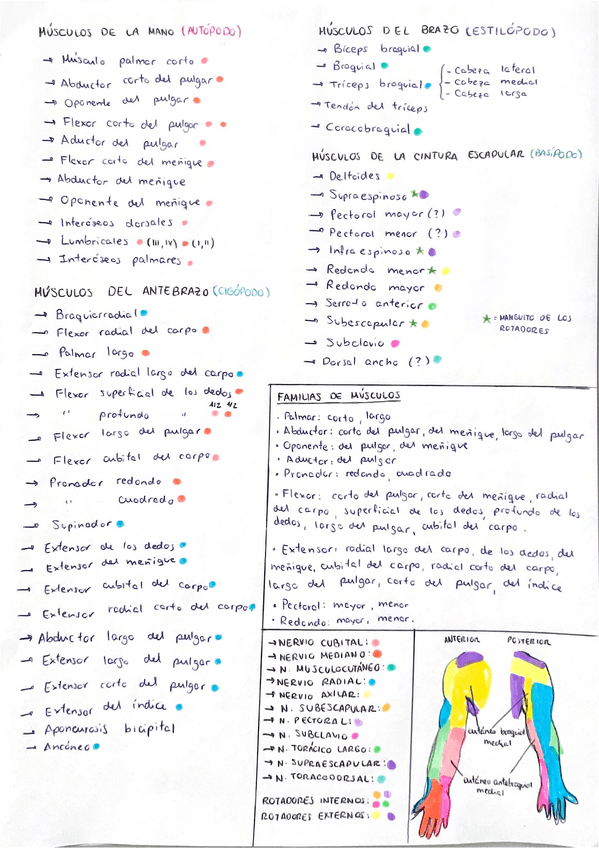 MÚSCULOS DE LA MANO (AUTÓPODO)
→ Músculo palmar corto
→ Abductor corto del pulgar
→ Oponente del pulgar
→ Flexor corto del pulgar
→ Aductor del pulgar
→ Flexor corto del meñique
→ Abductor del meñique
→ Oponente del meñique
→ Interóseos dorsales
→ Lumbricales (III, IV) (I, II)
→ Interóseos palmares
MÚSCULOS DEL ANTEBRAZO (CIGÓPODO)
→ Braquiorradial
→ Flexor radial del carpo
→ Palmar largo
→ Extensor radial largo del carpo
→ Flexor superficial de los dedos
→ " profundo " 1/2 1/2
→ Flexor largo del pulgar
→ Flexor cubital del carpo
→ Pronador redondo
→ " cuadrado
→ Supinador
→ Extensor de los dedos
→ Extensor del meñique
→ Extensor cubital del carpo
→ Extensor radial corto del carpo
→ Abductor largo del pulgar
→ Extensor largo del pulgar
→ Extensor corto del pulgar
→ Extensor del índice
→ Aponeurosis bicipital
→ Ancóneo
MÚSCULOS DEL BRAZO (ESTILÓPODO)
→ Bíceps braquial
→ Braquial
→ Tríceps braquial
- Cabeza lateral
- Cabeza medial
- Cabeza larga
→ Tendón del tríceps
→ Coracobraquial
MÚSCULOS DE LA CINTURA ESCAPULAR (BASIPODO)
→ Deltoides
→ Supraespinoso ★
→ Pectoral mayor (?)
→ Pectoral menor (?)
→ Infraespinoso ★
→ Redondo menor ★
→ Redondo mayor
→ Serrato anterior
→ Subescapular ★
→ Subclavio
→ Dorsal ancho (?)
★ = MANGUITO DE LOS
ROTADORES
FAMILIAS DE MÚSCULOS
· Palmar: corto, largo
· Abductor: corto del pulgar, del meñique, largo del pulgar
· Oponente: del pulgar, del meñique
· Aductor: del pulgar
· Pronador: redondo, cuadrado
· Flexor: corto del pulgar, corto del meñique, radial
del carpo, superficial de los dedos, profundo de los
dedos, largo del pulgar, cubital del carpo.
· Extensor: radial largo del carpo, de los dedos, del
meñique, cubital del carpo, radial corto del carpo,
largo del pulgar, corto del pulgar, del índice
· Pectoral: mayor, menor
· Redondo: mayor, menor.
→ NERVIO CUBITAL:
→ NERVIO MEDIANO:
→ N. MUSCULOCUTÁNEO:
→ NERVIO RADIAL:
→ NERVIO AXILAR:
→ N. SUBESCAPULAR:
→ N. PECTORAL:
→ N. SUBCLAVIO
→ N. TORÁCICO LARGO:
→ N. SUPRAESCAPULAR:
→ N. TORACODORSAL:
ROTADORES INTERNOS:
ROTADORES EXTERNOS:
ANTERIOR POSTERIOR
cutáneo braquial
medial
cutáneo antebraquial
medial